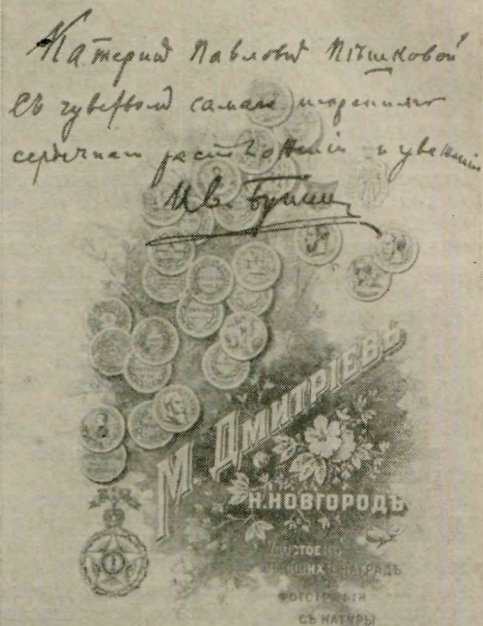 Катеринѣ Павловнѣ Пѣшковой
Съ чувствомъ самаго искренняго
сердечнаго расположенія и уваженія
Ив. Бунин
М. Дмитріевъ
Н. НОВГОРОДЪ
УДОСТОЕНЪ
ВЫСШИХЪ НАГРАДЪ
ФОТОГРАФІИ
СЪ НАТУРЫ